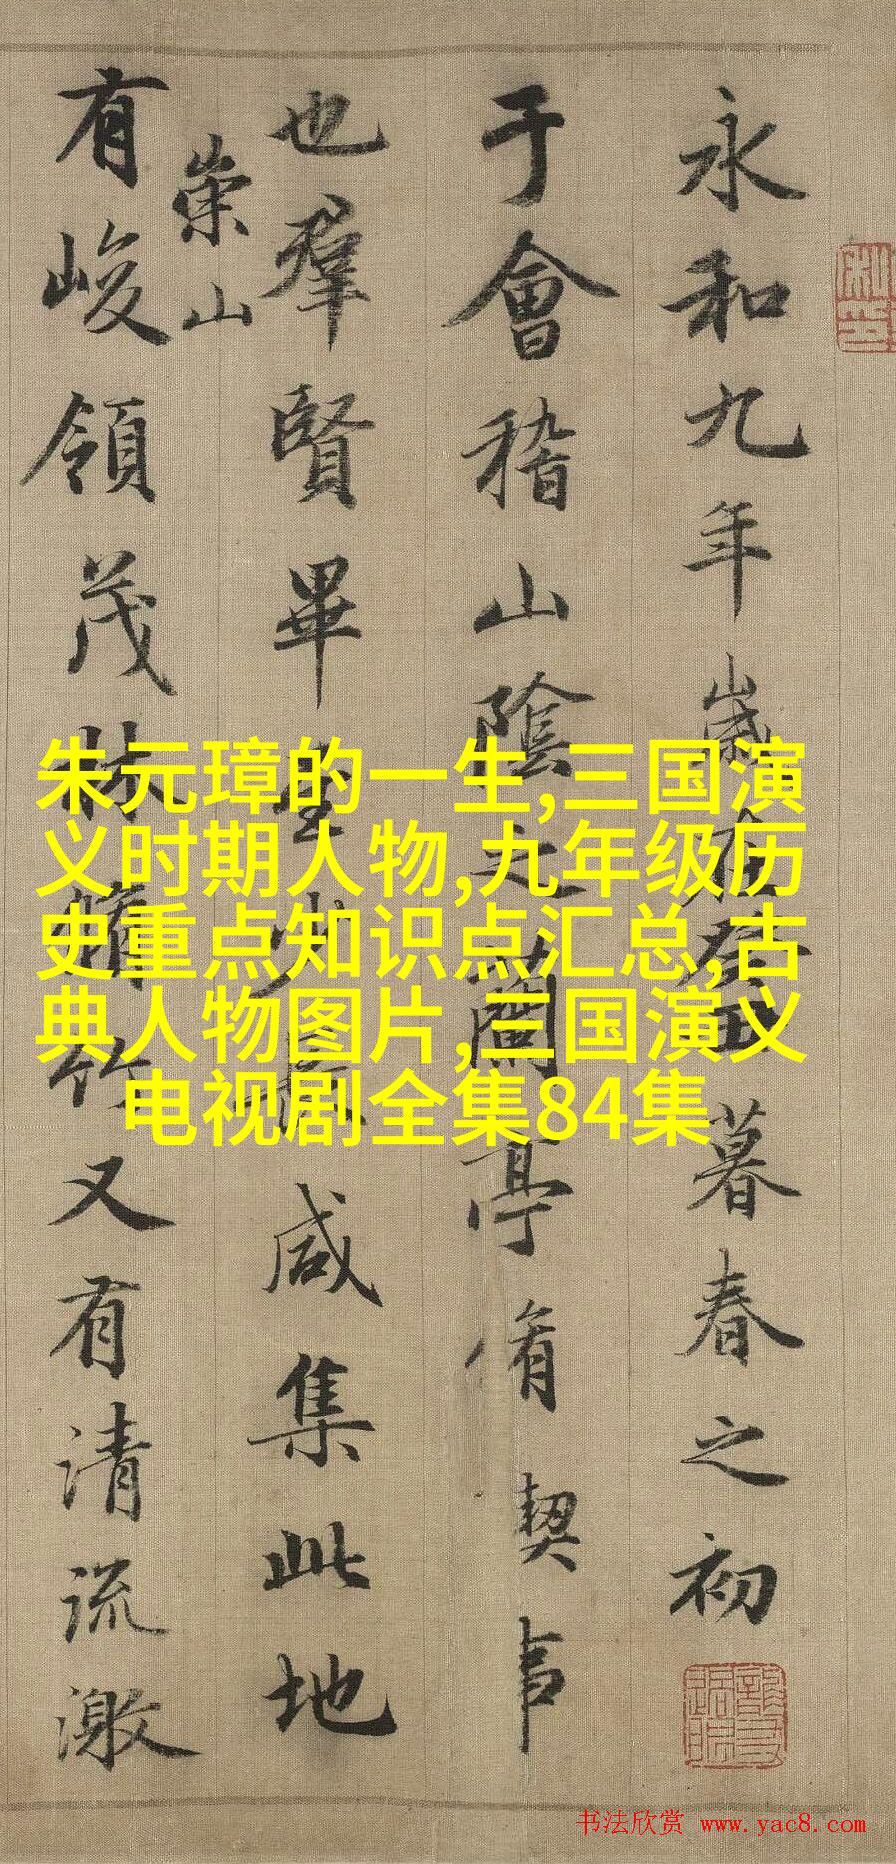 永和九年歲在癸丑暮春之初
于會稽山陰之蘭亭脩禊事
也羣賢畢至少長咸集此地
崇山
有峻領茂林脩竹又有清流激
朱元璋的一生,三国演
义时期人物,九年级历
史重点知识点汇总,古
典人物图片,三国演义
电视剧全集84集
书法欣赏 www.yac8.com